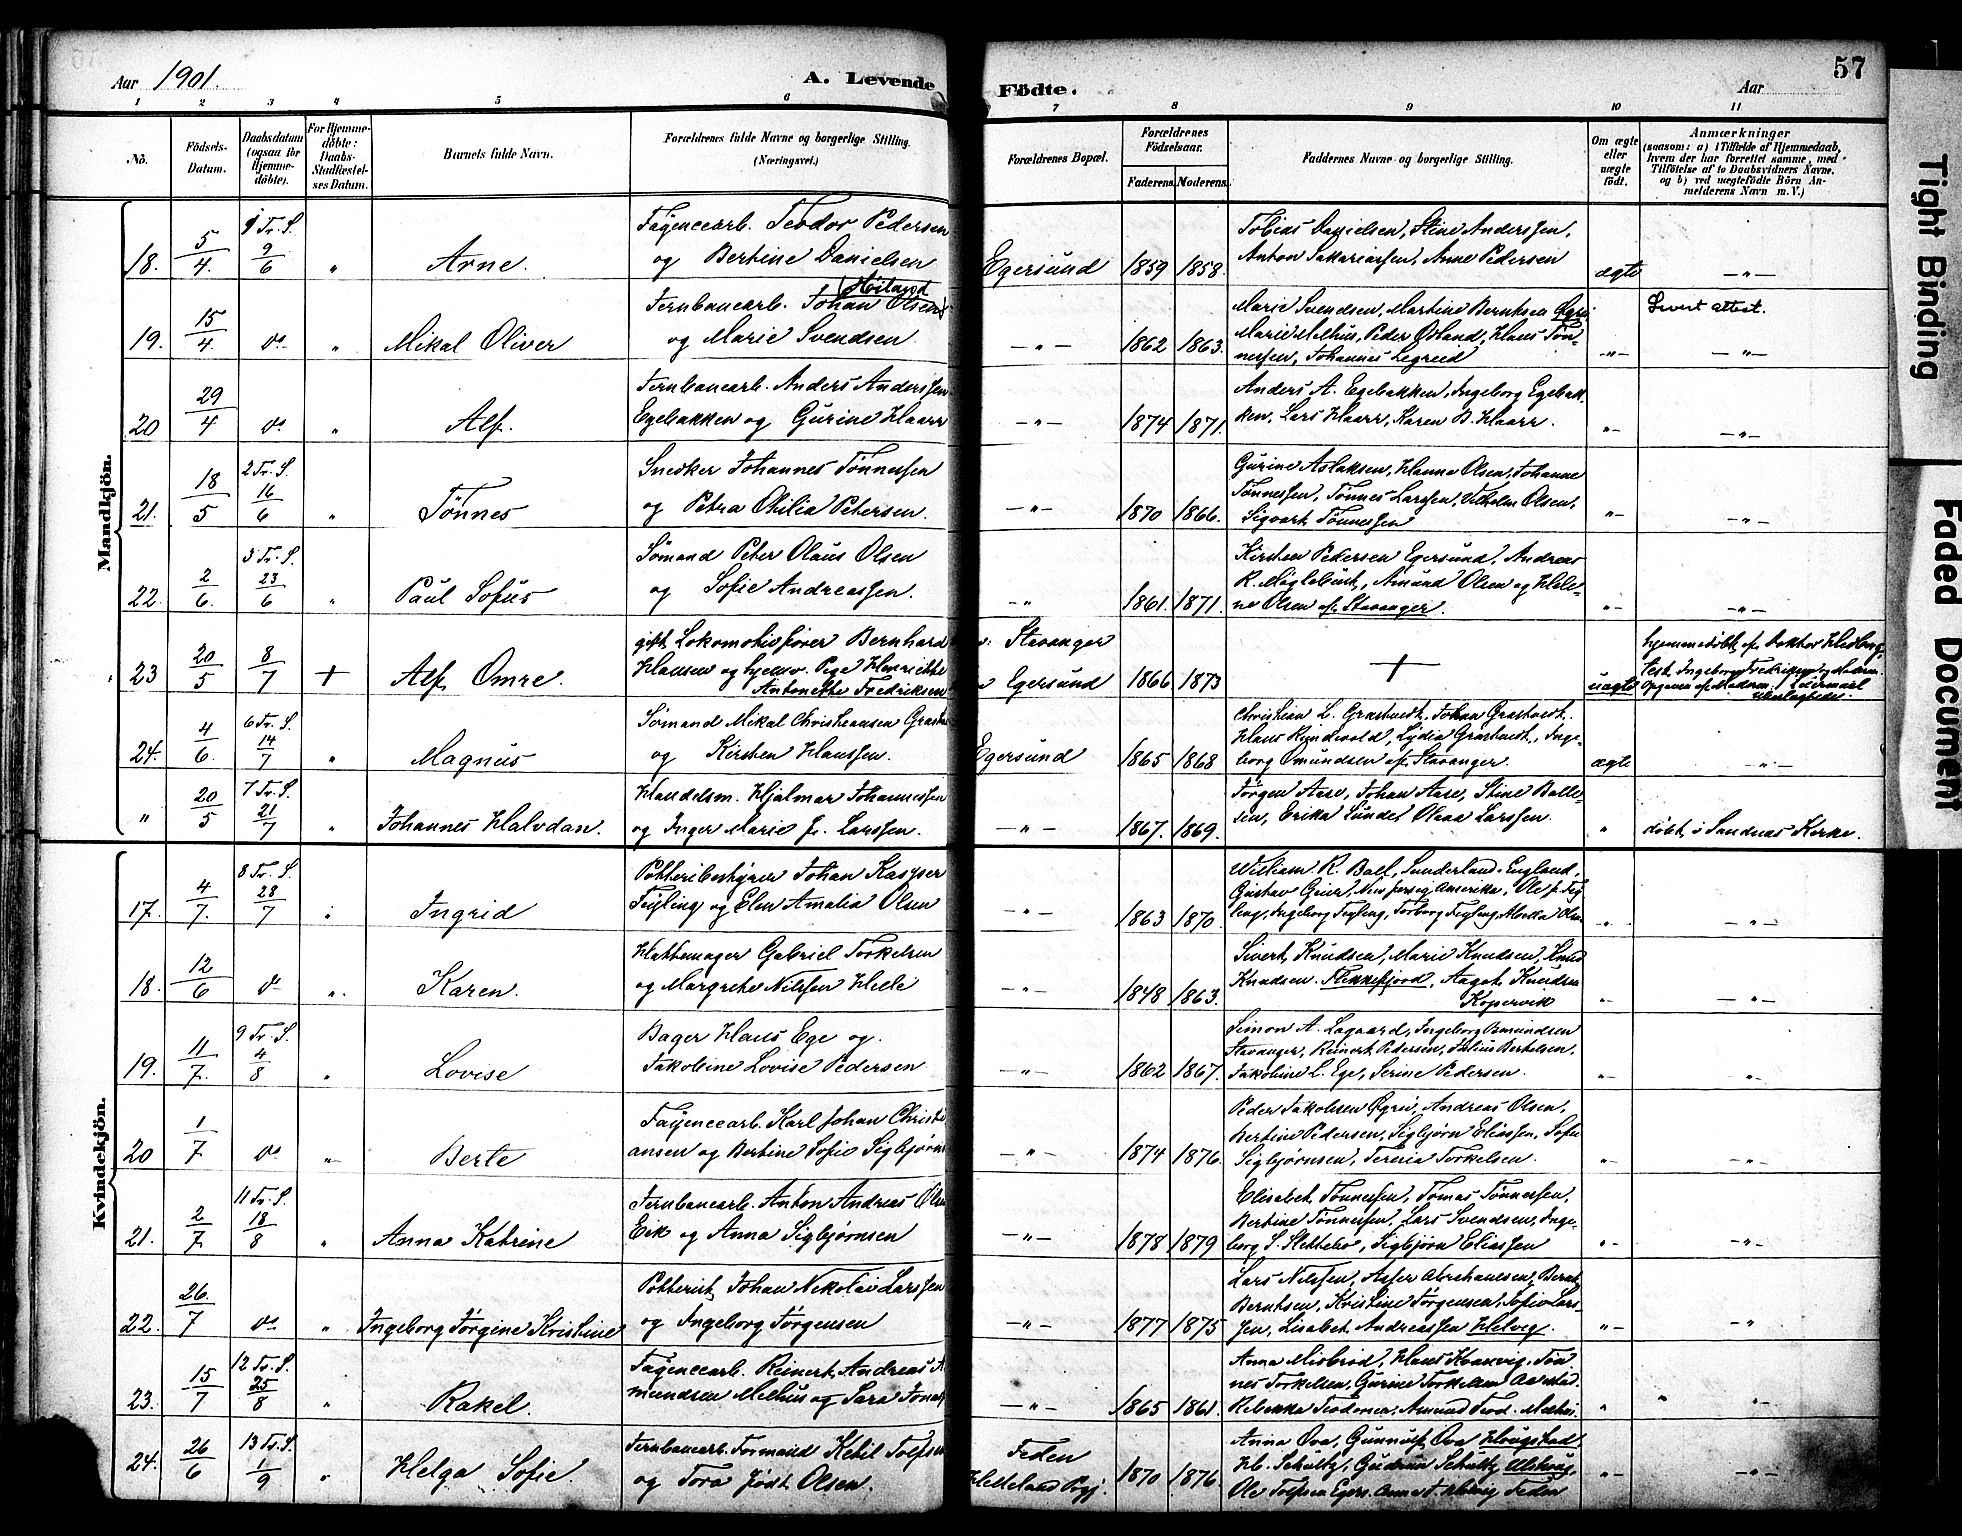 57
Aar 1901.
A. Levende Födte.
Aar
1 2 3 4 5 6 7 8 9 10 11
No.
Födsels-
Datum.
Daabsdatum
(ogsaa for
Hjemme-
döbte).
For Hjemme-
döbte:
Daabs-
Stadfæstel-
ses Datum.
Barnets fulde Navn.
Forældrenes fulde Navne og borgerlige Stilling.
(Næringsvei.)
Forældrenes Bopæl.
Forældrenes
Födselsaar.
Faderens. Moderens.
Faddernes Navne og borgerlige Stilling.
Om ægte
eller
uægte
födt.
Anmærkninger
(saasom: a) i Tilfælde af Hjemmedaab,
hvem der har forrettet samme, med
Tilföielse af to Daabsvidners Navne,
og b) ved uægtefödte Börn An-
melderens Navn m. V.)
Mandkjön.
18. 5/4. 1 Tr. S. 9/6 " Arne.
Fayencearb. Teodor Pedersen
og Bertine Danielsen
Egersund 1859 1858.
Tobias Danielsen, Stine Anderssen,
Anton Sakariassen, Anne Pedersen
ægte -"-
19. 15/4. do " Mikal Oliver
Jernbanearb. Johan Olsen (Høiland)
og Marie Svendsen
-"- 1862 1863.
Marie Svendsen, Martine Berntsen
Marie Melhus, Peder Østand, Hans Tøn-
nessen, Johannes Legreid
-"- Levert attest.
-"-
20 29/4 do " Alf.
Jernbanearb. Anders Anderssen
Egebakken og Gurine Haarr
-"- 1874 1871.
Anders A. Egebakken, Ingeborg Egebak-
ken, Lars Haarr, Karen B. Haarr.
-"- -"-
21. 18/5 2 Tr. S. 16/6 " Tønnes
Snedker Johannes Tønnessen
og Petra Otilia Petersen.
-"- 1870 1866.
Gurine Aslaksen, Hanna Olsen, Johanne
Tønnessen, Tønnes Larssen, Vilhelm Olsen,
Sigvart Tønnessen
-"- -"-
22. 2/6. 3 Tr. S. 23/6 " Paul Sofus
Sømand Peter Olaus Olsen
og Sofie Andreassen.
-"- 1861. 1871.
Kirsten Pedersen Egersund, Andreas
R. Møglebust, Amund Olsen og Hele-
ne Olsen af Stavanger.
-"- -"-
23 20/5 8/7 + Alf Omre.
gift Lokomotivfører Bernhard
Hansen og hjemv. Pige Henriette
Antonette Fredriksen
Stavanger
Egersund 1866 1873
+
uægte
hjemmedøbt af Doktor
Test. Ingeborg Fredriksen og
Opgaven af Moderen.
24. 4/6. 6 Tr. S. 14/7 " Magnus
Sømand Mikal Christiansen
og Kirsten Hanssen.
Egersund 1865 1868
Christian L. Grastveit, Johan Grastveit,
Hans Rundvold, Lydia Grastveit, Inge-
borg Omundsen af Stavanger.
ægte -"-
" 20/5 7 Tr. S. 21/7 " Johannes Halvdan.
Handelsm. Hjalmar Johannessen
og Inger Marie f. Larssen.
-"- 1867. 1869.
Jørgen Aase, Johan Aase, Stine
Erika Sundet Larssen.
" døbt i Sandnæs Kirke.
Kvindekjön.
17. 4/7. 8 Tr. S. 28/7 " Ingrid
Potteribestyrer Johan Kasper
Feyling og Elen Amalia Olsen
-"- 1863 1870.
William R. Ball, Sunderland, England,
Gustav Geier, New Jersey Amerika, Ole
Ingeborg Feyling, Torborg Feyling,
" "
18. 12/6 do " Karen.
Hattemager Gabriel Torkelsen
og Margrete Nilssen
-"- 1848 1863.
Sivert Knudsen, Marie Knudsen, Knud
Knudsen. Flekkefjord, Aagot Knudsen
Kopervik
-"- -"-
19. 11/7. 9 Tr. S. 4/8 " Lovise
Bager Hans Ege og
Jakobine Lovise Pedersen
-"- 1862 1867.
Simon A. Lagaard, Ingeborg Omundsen
Stavanger, Reinert Pedersen, Julius Bertelsen,
Jakobine L. Ege, Serine Pedersen.
-"- "
20 1/7 do " Berte
Fayencearb. Karl Johan Christi-
ansen og Bertine Sofie Sigbjørns
-"- 1874 1876.
Peder Jakobsen, Andreas Olsen,
Bertine Pedersen, Sigbjørn Eliassen, Sofie
Sigbjørnsen, Torkelsen.
-"- -"-
21. 2/7. 11 Tr. S. 18/8 " Anna Katrine
Jernbanearb. Anton Andreas Olsen
Eik og Anna Sigbjørnsen
-"- 1878 1879
Elisabet Tønnessen, Tomas Tønnessen,
Bertine Tønnessen, Lars Svendsen, Inge-
borg S. Slettebø, Sigbjørn Eliassen
-"- -"-
22. 26./7 do " Ingeborg Jørgine Kristine
Potterist Johan Nikolai Larssen
og Ingeborg Jørgensen
-"- 1877 1875
Lars Nilssen, Asser Abrahamsen, Bernt
Berntsen, Kristine Jørgensen, Sofie Lars-
sen, Lisabet Andreassen Helvig.
-"- "
23. 15/7 12 Tr. S. 25/8 " Rakel.
Fayencearb. Reinert Andreas A-
mundsen Melhus og Sara
-"- 1865 1861.
Anna Misbrod, Hans Tøn-
nes Torkelsen, Gurine Torkelsen
Rebekka Amund
" "
24. 26/6 13 Tr. S. 1/9 " Helga Sofie.
Jernbanearb. Formand Ketil Tolfsen
og Tora født Olsen.
Feden
Hetteland 1870 1876.
Anna Ova, Gunnulf Ova Haugstad
Schultz, Gudrun Schultz
Ole Tolfsen Egers. Feden
-"- -"-
Tight Binding
Faded Document